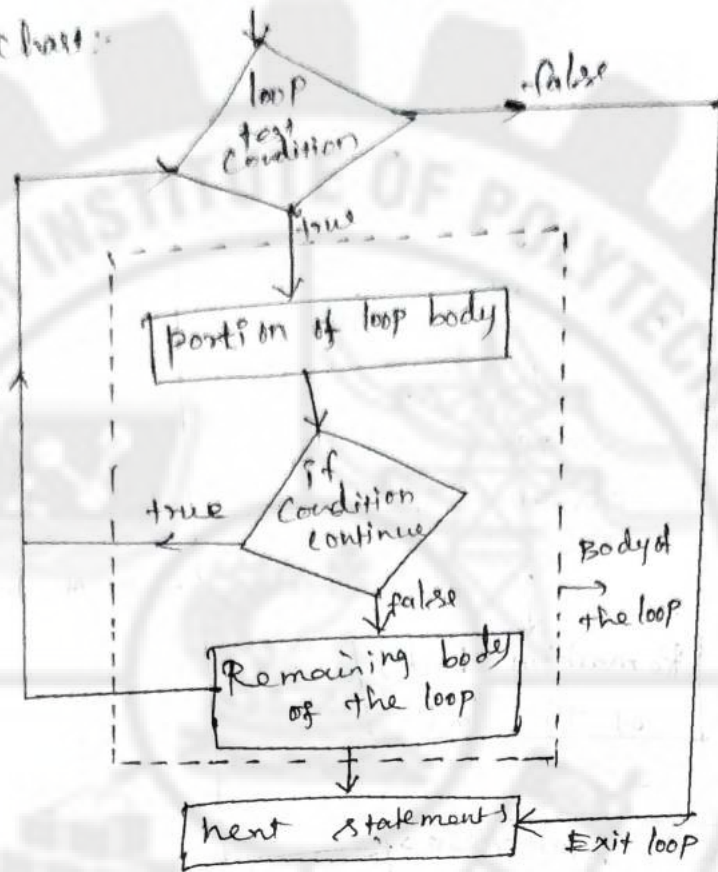 chart:-
loop
test
condition
false
true
INSTITUTE OF POLYTECH
portion of loop body
if
condition
continue
true
false
Body of
the loop
Remaining body
of the loop
next statements
Exit loop